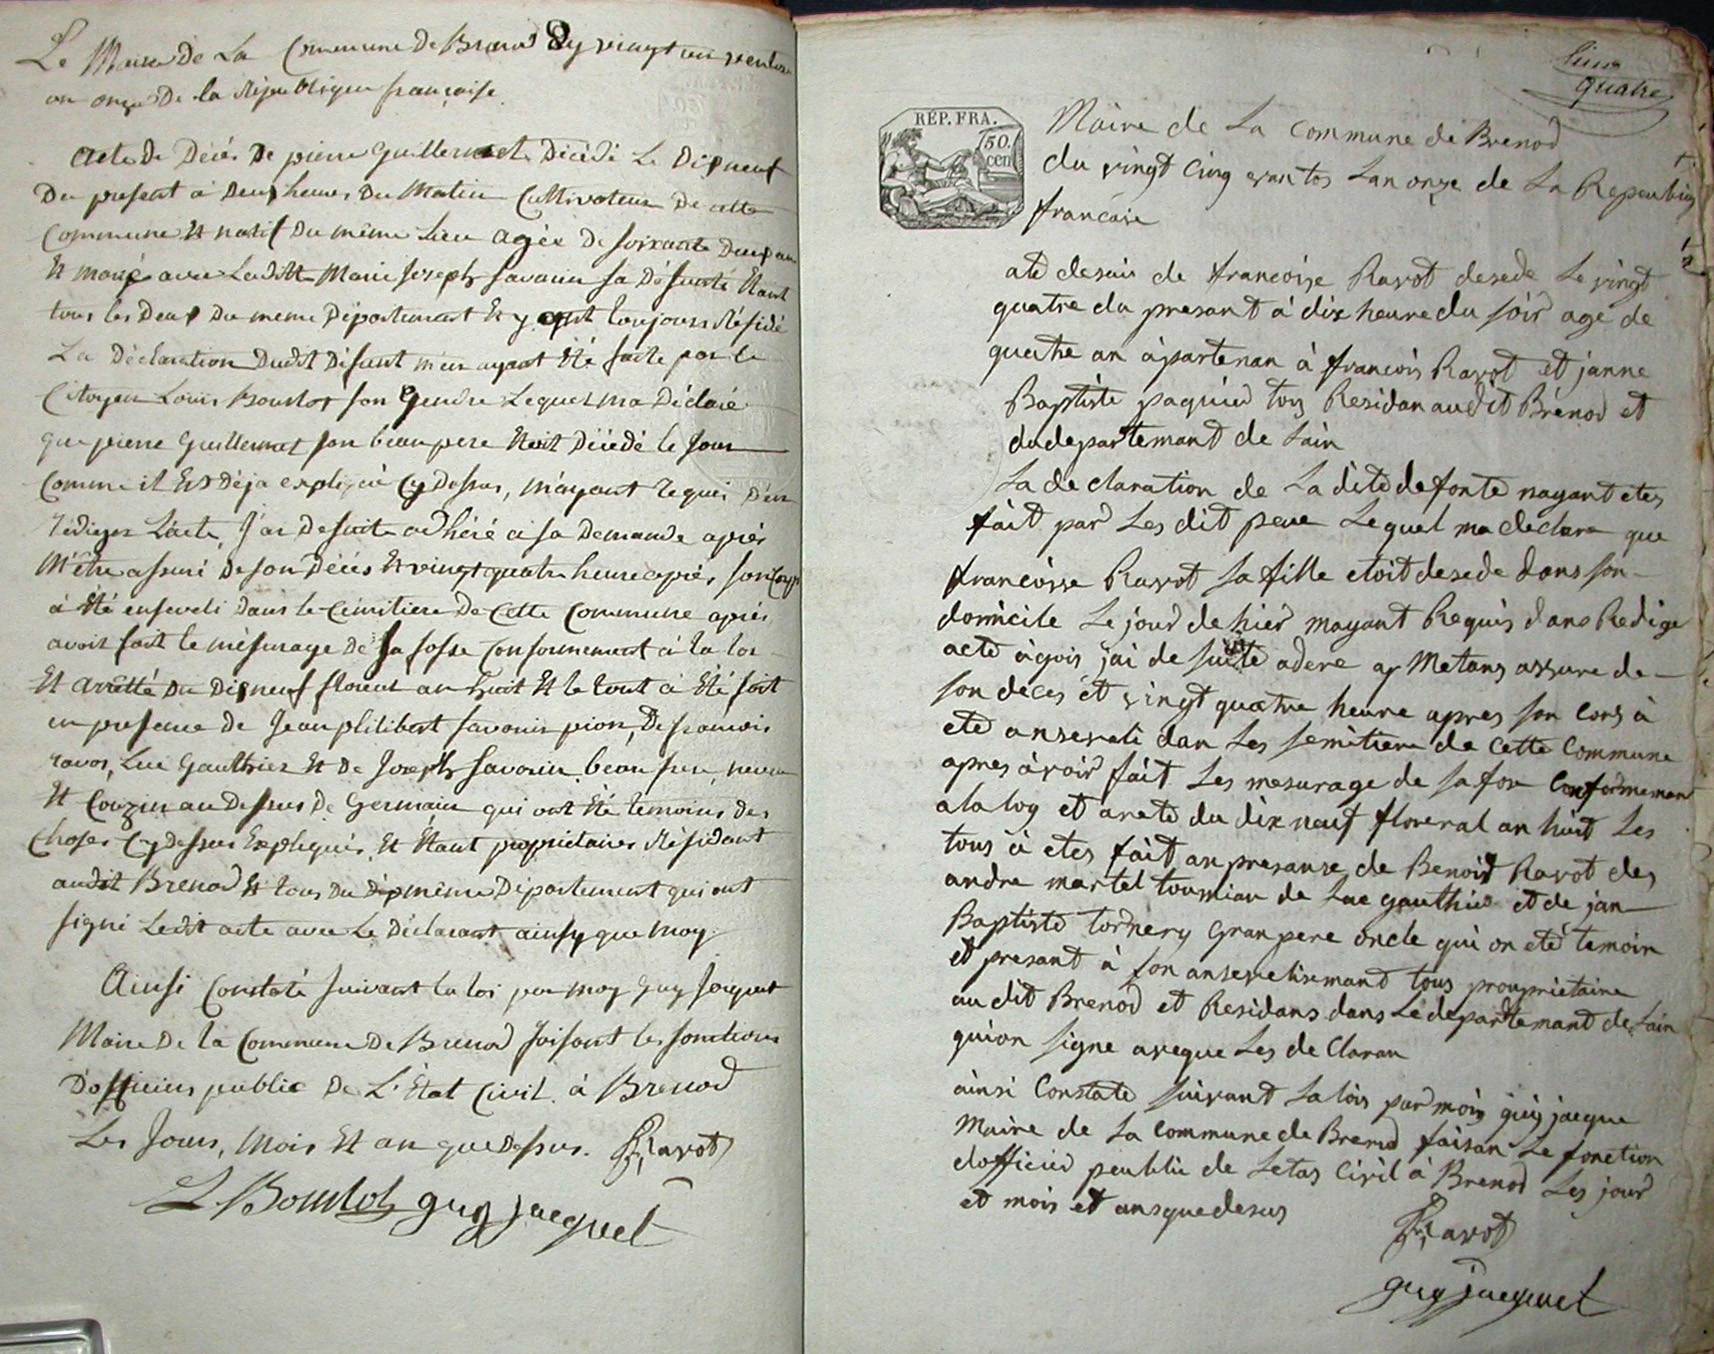 Le Maire De La Commune De Brenod Cy vingt un ventose
an onze De la République française.
Acte De Décés De pierre Guillermet Décédé Le Dixneuf
Du present à Deux heures Du Matin Cultivateur De cette
Commune Et natif Du même Lieu agée De soixante Deux ans
Et marié avec Ladite Marie Joseph Savarin sa Défunte Etant
tous les Deux Du meme Département Et y ayant toujours Résidé
La Déclaration Dudit Défunt m'en ayant Été faite par le
Citoyen Louis Bourlot son Gendre Lequel ma Déclaré
que pierre Guillermet son beau pere Etoit Décédé le Jour
Comme il Est Déja expliqué Cy Dessus, m'ayant requis D'en
rediger L'acte, J'ai De suite adhéré à sa Demande après
M'être assuré De son Décés Et vingt quatre heure après son Corps
à Été enseveli Dans le Cimitiere De Cette Commune après
avoir fait le mésurage De sa fosse Conformement à la loi
Et arretté Du Dixneuf floreal an huit Et le tout à Été fait
en presence de Jean philibert Savarin pion, De francois
ravot, Luc Gauthier Et De Joseph Savarin beau frere neveu
Et Couzin au Dessus De Germain qui ont Été temoins Des
choses Cy Dessus Expliquées Et Etant propriétaires Résidant
audit Brenod Et tous Du même Département qui ont
signé Ledit acte avec Le Déclarant ainsy que moy.
Ainsi Constaté suivant la loi par moy Guy Jacquet
Maire De la Commune De Brenod faisant les fonctions
D'officier public De L'État Civil à Brenod
Les Jours, Mois Et an que Dessus. Fr. Ravot
L Bourlot guy jacquet
quatre
RÉP. FRA.
50.
cen
Maire de La commune de Brenod
du vingt cinq vantos Lan onze de La Republiq
francaise
ate desais de francoise Ravot desede Le vingt
quatre du presant à dix heure du soir age de
quatre an àpartenan à francois Ravot et janne
Baptiste paquier tous Residan audit Brenod et
du departemant de Lain
La de claration de La dite defonte nayant etes
fait par Les dit pere Le quel ma declare que
francoisse Ravot sa fille etoit desede dans son
domicile Le jour de hier mayant Requis dans Redige
acte àqois jai de suitte adere ap Metans assure de
son deces et vingt quatre heure apres son Cors à
ete anseveli dan Les semitiere de Cette Commune
apres àvoir fait Les mesurage de sa fose Conformemant
a la loy et arete du dix neuf floreral an huit Les
tous à etes fait an presanse de Benoit Ravot des
andre martel tournian de Luc gauthier et de jan
Baptiste tornery Gran pere oncle qui on eté temoin
et presant à son ansevelisemant tous proupriétaire
au dit Brenod et Residans dans Le departemant de Lain
quion signe aveque Les de Claran
ainsi Constate suivant La lois par mois guy jacque
Maire de La Commune de Brenod faisan Le fonction
dofficier peublic de Letas Civil à Brenod Les jour
et mois et ansquedesus
Fr. Ravot
guy jacquet